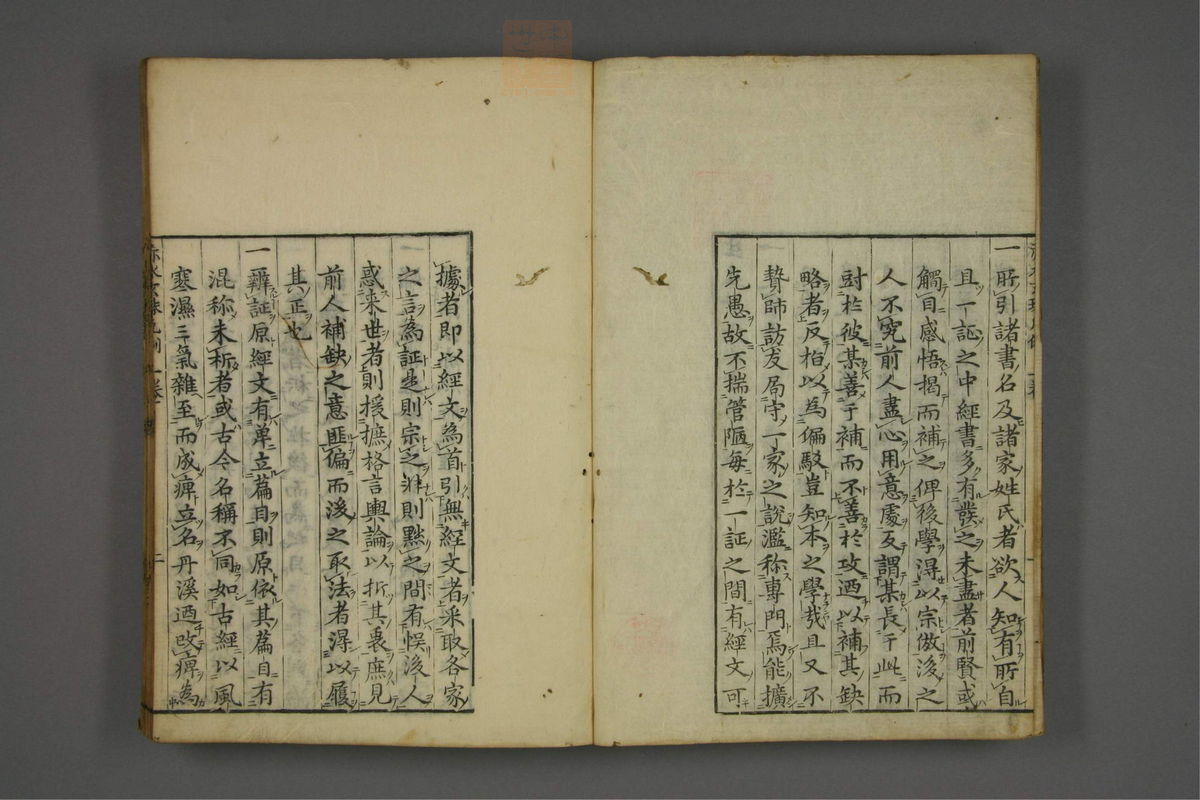 一所引諸書名及諸家姓氏者欲人知有所自
且一証之中經書多有發之未盡者前賢或
觸目感悟揭而補之俾後學得以宗倣後之
人不究前人盡心用意處反謂某長于此而
〓於彼某善于補而不善於攻迺以補其缺
略者反指以為偏駁豈知本之學哉且又不
贄師訪友局守一家之說濫称專門焉能擴
先愚故不揣管陋每於一証之間有經文可
據者即以經文為首引無經文者采取各家
之言為証是則宗之非則黜之間有悞後人
惑来世者則援摭格言輿論以折其衷庶見
前人補缺之意匪偏而後之取法者得以履
其正也
一辨証原經文有单立篇目則原依其篇目有
混称未析者或古今名稱不同如古經以風
寒濕三氣雜至而成痺立名丹溪迺改痺為